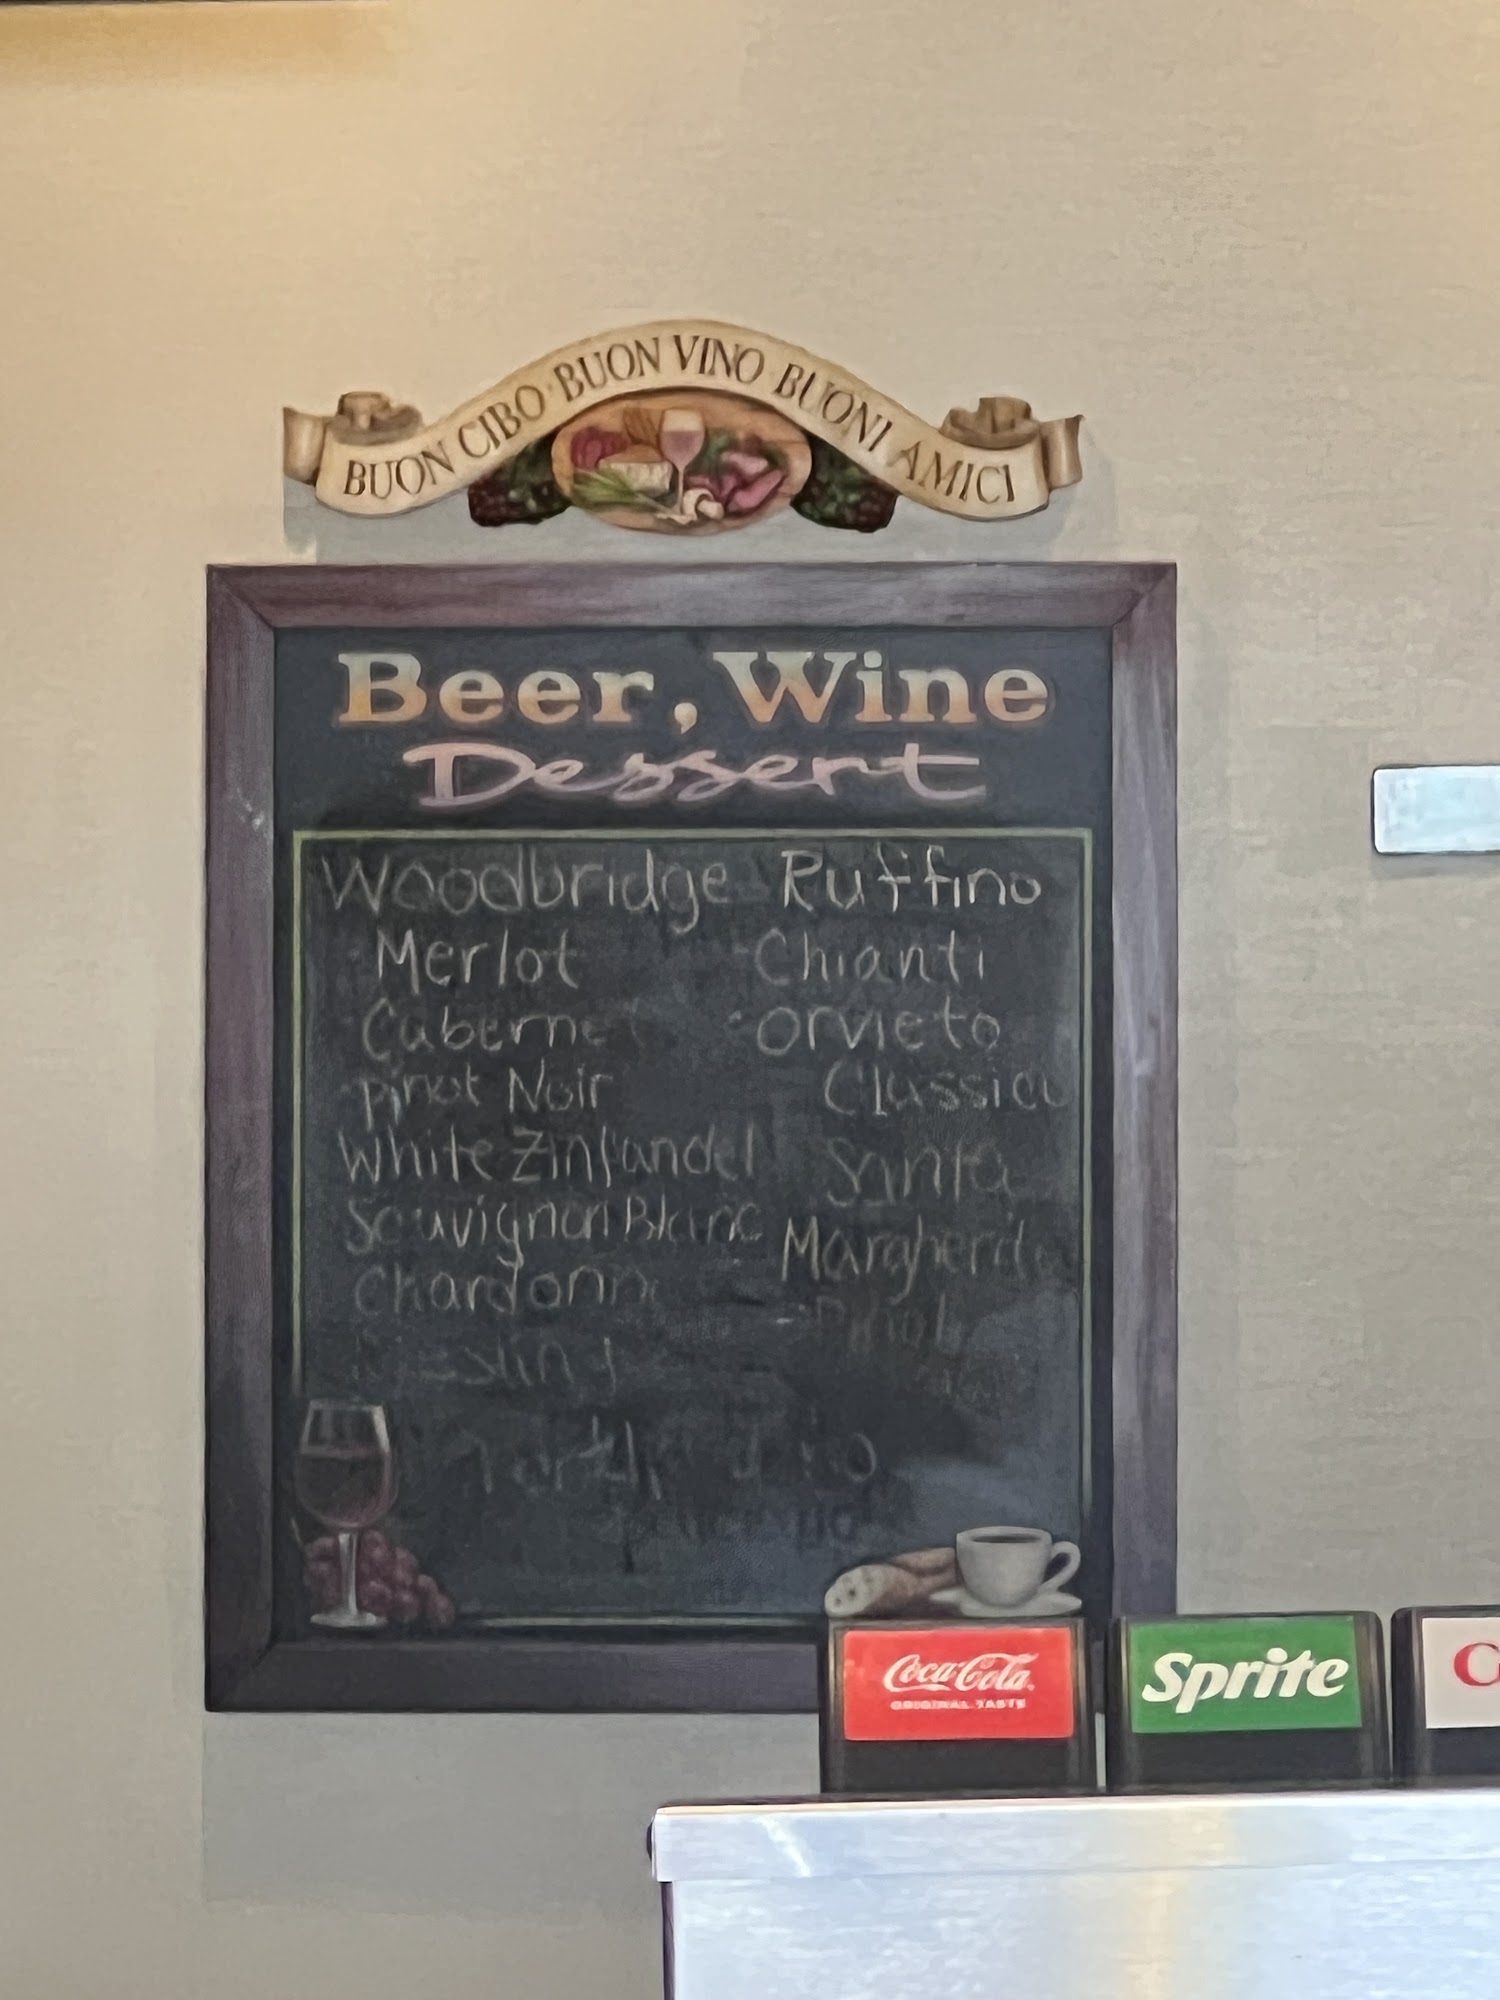 BUON CIBO · BUON VINO · BUONI AMICI
Beer, Wine
Dessert
Woodbridge
Merlot
Cabernet
Pinot Noir
White Zinfandel
Sauvignon Blanc
Chardonn
Ruffino
- Chianti
- Orvieto
Classico
Santa
Margherita
Coca-Cola
ORIGINAL TASTE
Sprite